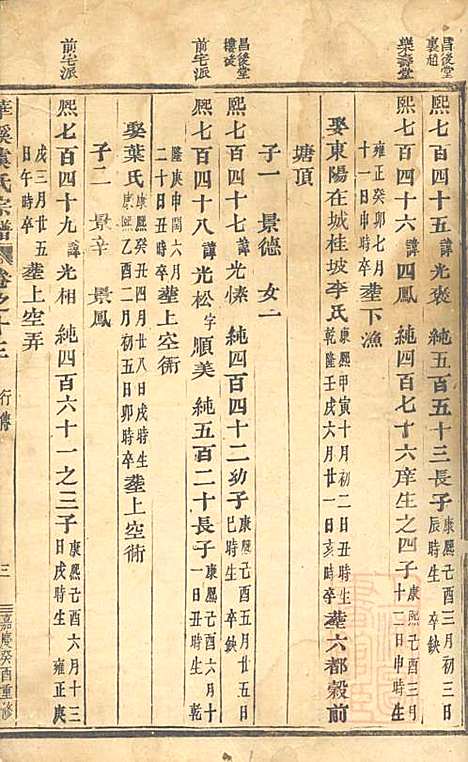 昌後堂裏趙
熙七百四十五諱光裘 純五百五十三長子康熙己酉三月初三日辰時生 卒缺
樂壽堂
熙七百四十六諱四鳳 純四百七十六庠生之四子康熙己酉三月十二日申時生
雍正癸卯七月十一日申時卒塟下漁
娶東陽在城桂坡李氏康熙甲寅十月初二日丑時生乾隆壬戌六月廿一日亥時卒塟六都榖前
塘頂
子一 景德 女一
昌後堂樓徒
熙七百四十七諱光愫 純四百四十二幼子康熙己酉五月廿五日巳時生 卒缺
前宅派
熙七百四十八諱光松字順美 純五百二十長子康熙己酉六月十一日丑時生 乾
隆庚申閏六月二十日丑時卒塟上空術
娶葉氏康熙癸丑四月廿八日戌時生乾隆乙酉二月初五日卯時卒塟上空術
子二 景辛 景鳳
前宅派
熙七百四十九諱光相 純四百六十一之三子康熙己酉六月十三日戌時生 雍正庚
戌三月廿五日午時卒塟上空弄
華溪虞氏宗譜 卷之十三 行傳 三 嘉慶癸酉重修